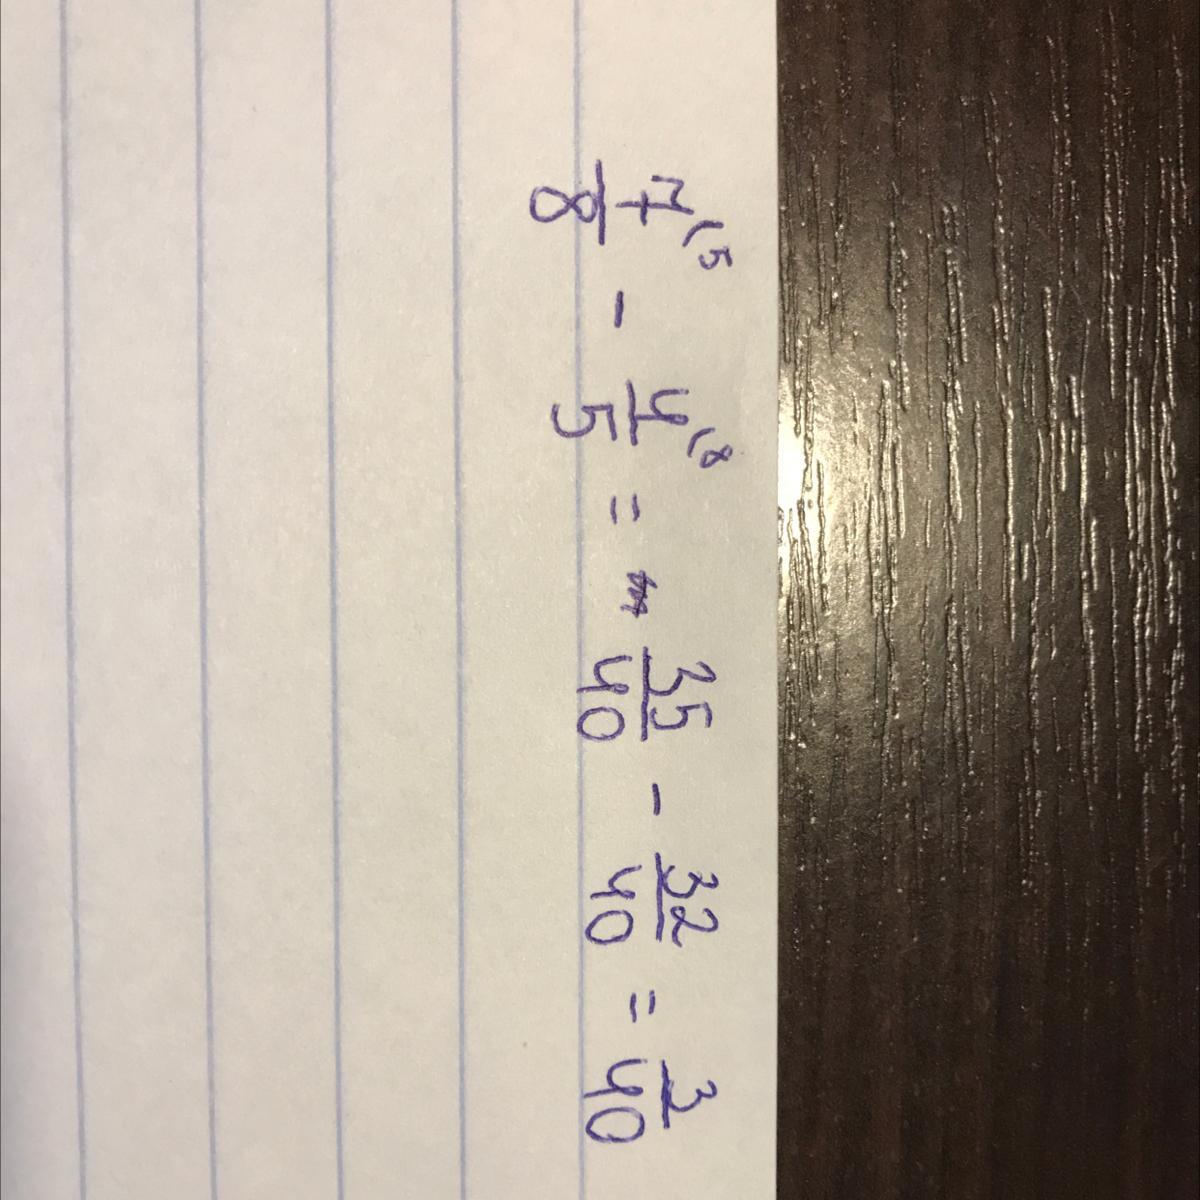 7/8⁽⁵ - 4/5⁽⁸ = 35/40 - 32/40 = 3/40